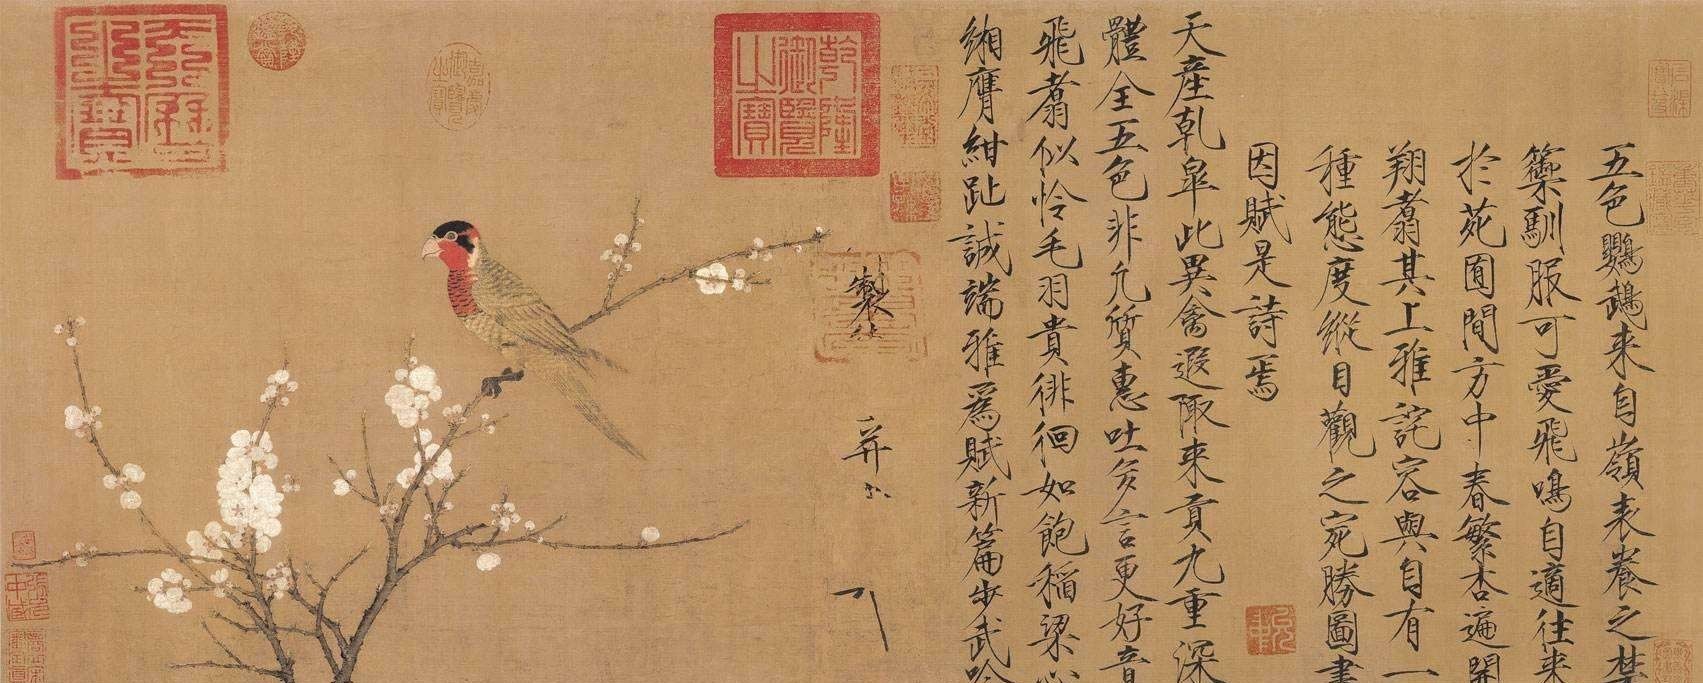 五色鸚鵡来自嶺表養之禁
籞馴服可愛飛鳴自適往来
於苑囿間方中春繁杏遍開
翔翥其上雅詫容與自有一
種態度縱目觀之宛勝圖畫
因賦是詩焉
天産乹皐此異禽遐陬来貢九重深
體全五色非凢質惠吐多言更好音
飛翥似憐毛羽貴徘徊如飽稻粱心
緗膺紺趾誠端雅爲賦新篇步武吟
製
并
乾隆御覽之寶
嘉慶御覽之寶